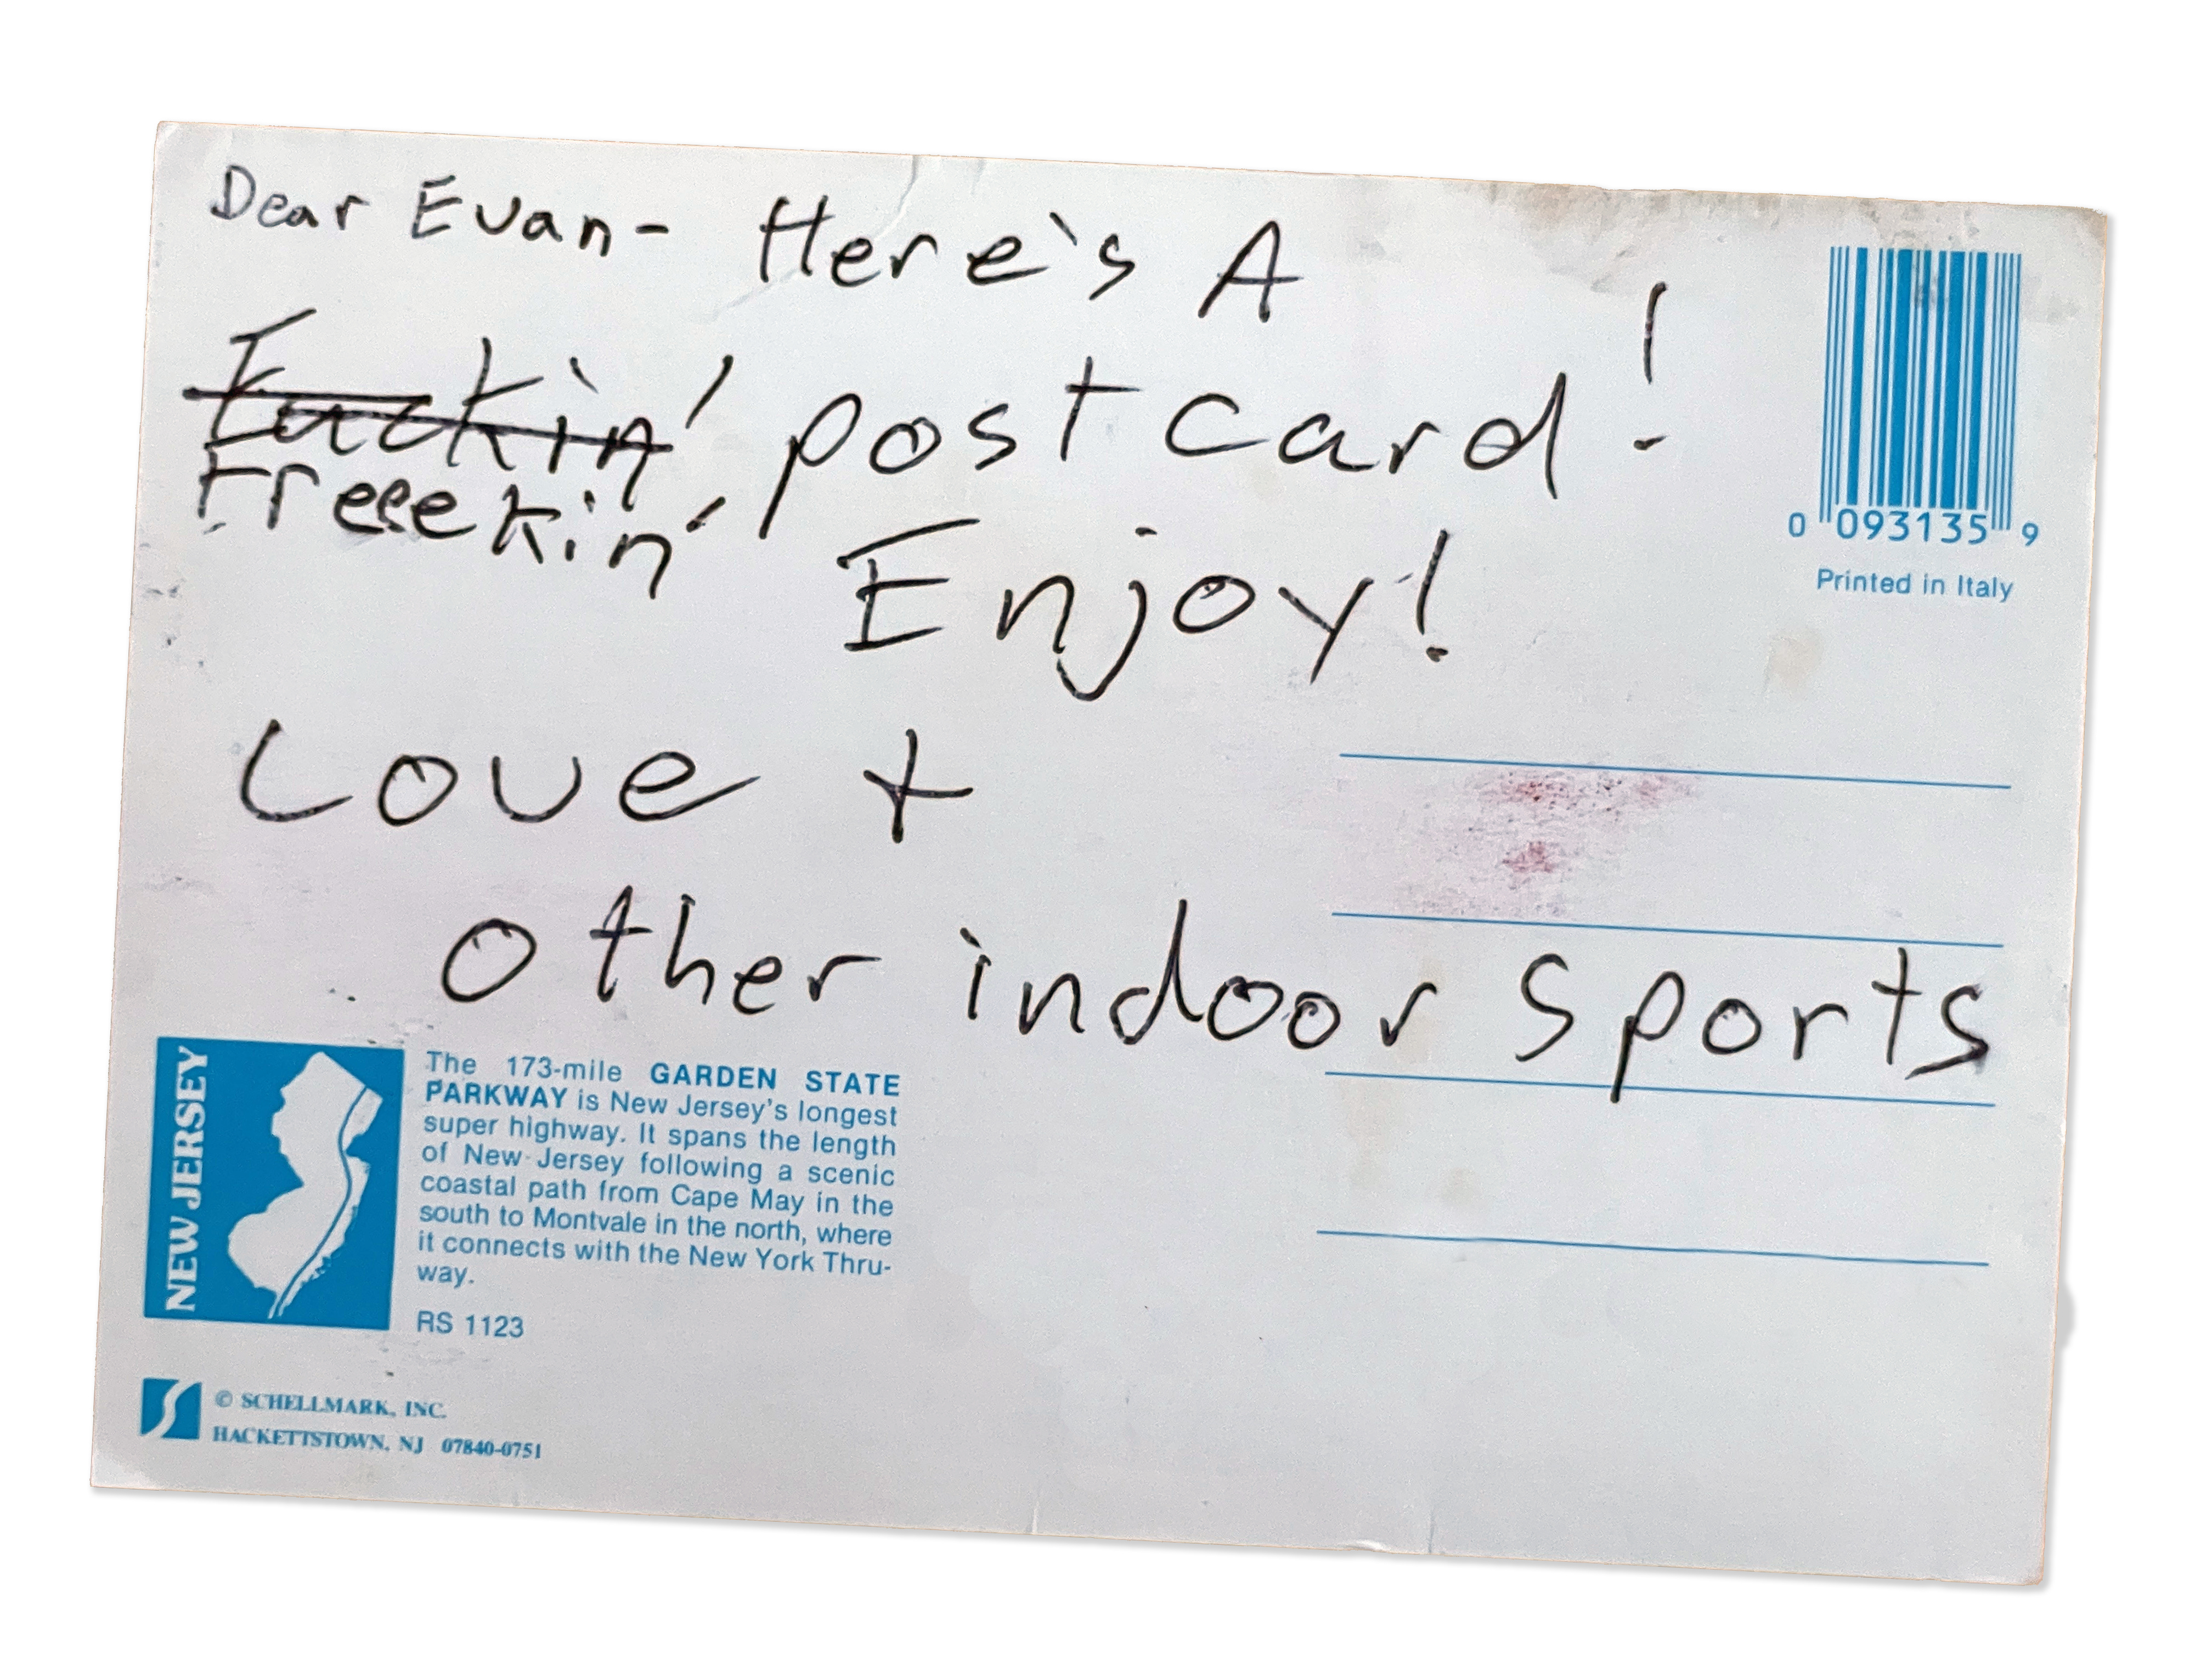 Dear Evan- Here's A
Fuckin' postcard!
Freeekin'
Enjoy!
Love +
other indoor sports
0 093135 9
Printed in Italy
NEW JERSEY
The 173-mile GARDEN STATE
PARKWAY is New Jersey's longest
super highway. It spans the length
of New Jersey following a scenic
coastal path from Cape May in the
south to Montvale in the north, where
it connects with the New York Thru-
way.
RS 1123
© SCHELLMARK, INC.
HACKETTSTOWN, NJ 07840-0751